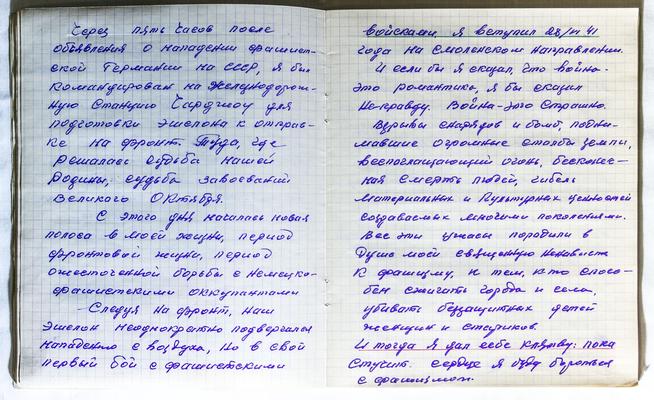 Через пять часов после
объявления о нападении фашист-
ской Германии на СССР, я был
командирован на железнодорож-
ную станцию Чарджоу для
подготовки эшелона к отправ-
ке на фронт. Туда, где
решалась судьба нашей
Родины, судьба завоеваний
Великого Октября.
С этого дня началась новая
полоса в моей жизни, период
фронтовой жизни, период
ожесточенной борьбы с немецко-
фашистскими оккупантами
Следуя на фронт, наш
эшелон неоднократно подвергался
нападению с воздуха, но в свой
первый бой с фашистскими
войсками, я вступил 28/VI 41
года на Смоленском направлении.
И если бы я сказал, что война-
это романтика, я бы сказал
неправду. Война-это страшно.
Взрывы снарядов и бомб, подни-
мавшие огромные столбы земли,
всепоглощающий огонь, бесконеч-
ная смерть людей, гибель
материальных и культурных ценностей
создаваемых многими поколениями.
Все эти ужасы породили в
душе моей священную ненависть
к фашизму, к тем, кто спосо-
бен сжигать города и села,
убивать беззащитных детей
женщин и стариков.
И тогда я дал себе клятву: пока
стучит сердце я буду бороться
с фашизмом.